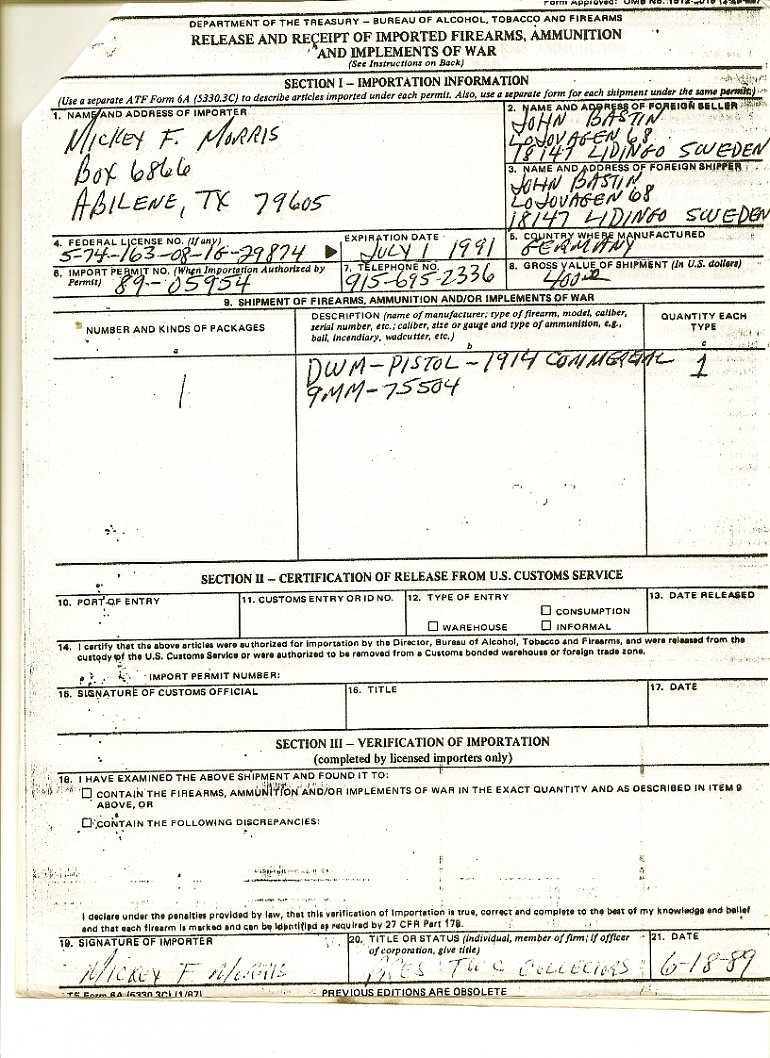 Form Approved: OMB No.
DEPARTMENT OF THE TREASURY – BUREAU OF ALCOHOL, TOBACCO AND FIREARMS
RELEASE AND RECEIPT OF IMPORTED FIREARMS, AMMUNITION
AND IMPLEMENTS OF WAR
(See Instructions on Back)
SECTION I – IMPORTATION INFORMATION
(Use a separate ATF Form 6A (5330.3C) to describe articles imported under each permit. Also, use a separate form for each shipment under the same permit.)
1. NAME AND ADDRESS OF IMPORTER
MICKEY F. MORRIS
BOX 6866
ABILENE, TX 79605
2. NAME AND ADDRESS OF FOREIGN SELLER
JOHN BASTIN
LOJOVAGEN 68
18147 LIDINGO SWEDEN
3. NAME AND ADDRESS OF FOREIGN SHIPPER
JOHN BASTIN
LOJOVAGEN 68
18147 LIDINGO SWEDEN
4. FEDERAL LICENSE NO. (If any)
5-74-163-08-1G-29874
EXPIRATION DATE
JULY 1 1991
5. COUNTRY WHERE MANUFACTURED
GERMANY
6. IMPORT PERMIT NO. (When Importation Authorized by
Permit) 89-05954
7. TELEPHONE NO.
915-695-2336
8. GROSS VALUE OF SHIPMENT (In U.S. dollars)
400.00
9. SHIPMENT OF FIREARMS, AMMUNITION AND/OR IMPLEMENTS OF WAR
NUMBER AND KINDS OF PACKAGES
a
DESCRIPTION (name of manufacturer; type of firearm, model, caliber,
serial number, etc.; caliber, size or gauge and type of ammunition, e.g.,
ball, incendiary, wadcutter, etc.)
b
QUANTITY EACH
TYPE
c
1
DWM-PISTOL-1914 COMMERCIAL
9MM-75504
1
SECTION II – CERTIFICATION OF RELEASE FROM U.S. CUSTOMS SERVICE
10. PORT OF ENTRY
11. CUSTOMS ENTRY OR ID NO.
12. TYPE OF ENTRY
CONSUMPTION
WAREHOUSE
INFORMAL
13. DATE RELEASED
14. I certify that the above articles were authorized for importation by the Director, Bureau of Alcohol, Tobacco and Firearms, and were released from the
custody of the U.S. Customs Service or were authorized to be removed from a Customs bonded warehouse or foreign trade zone.
IMPORT PERMIT NUMBER:
15. SIGNATURE OF CUSTOMS OFFICIAL
16. TITLE
17. DATE
SECTION III – VERIFICATION OF IMPORTATION
(completed by licensed importers only)
18. I HAVE EXAMINED THE ABOVE SHIPMENT AND FOUND IT TO:
CONTAIN THE FIREARMS, AMMUNITION AND/OR IMPLEMENTS OF WAR IN THE EXACT QUANTITY AND AS DESCRIBED IN ITEM 9
ABOVE, OR
CONTAIN THE FOLLOWING DISCREPANCIES:
I declare under the penalties provided by law, that this verification of importation is true, correct and complete to the best of my knowledge and belief
and that each firearm is marked and can be identified as required by 27 CFR Part 178.
19. SIGNATURE OF IMPORTER
MICKEY F MORRIS
20. TITLE OR STATUS (individual, member of firm; if officer
of corporation, give title)
PRES COLLECTORS
21. DATE
6-18-89
ATF Form 6A (5330.3C) (1/87)
PREVIOUS EDITIONS ARE OBSOLETE